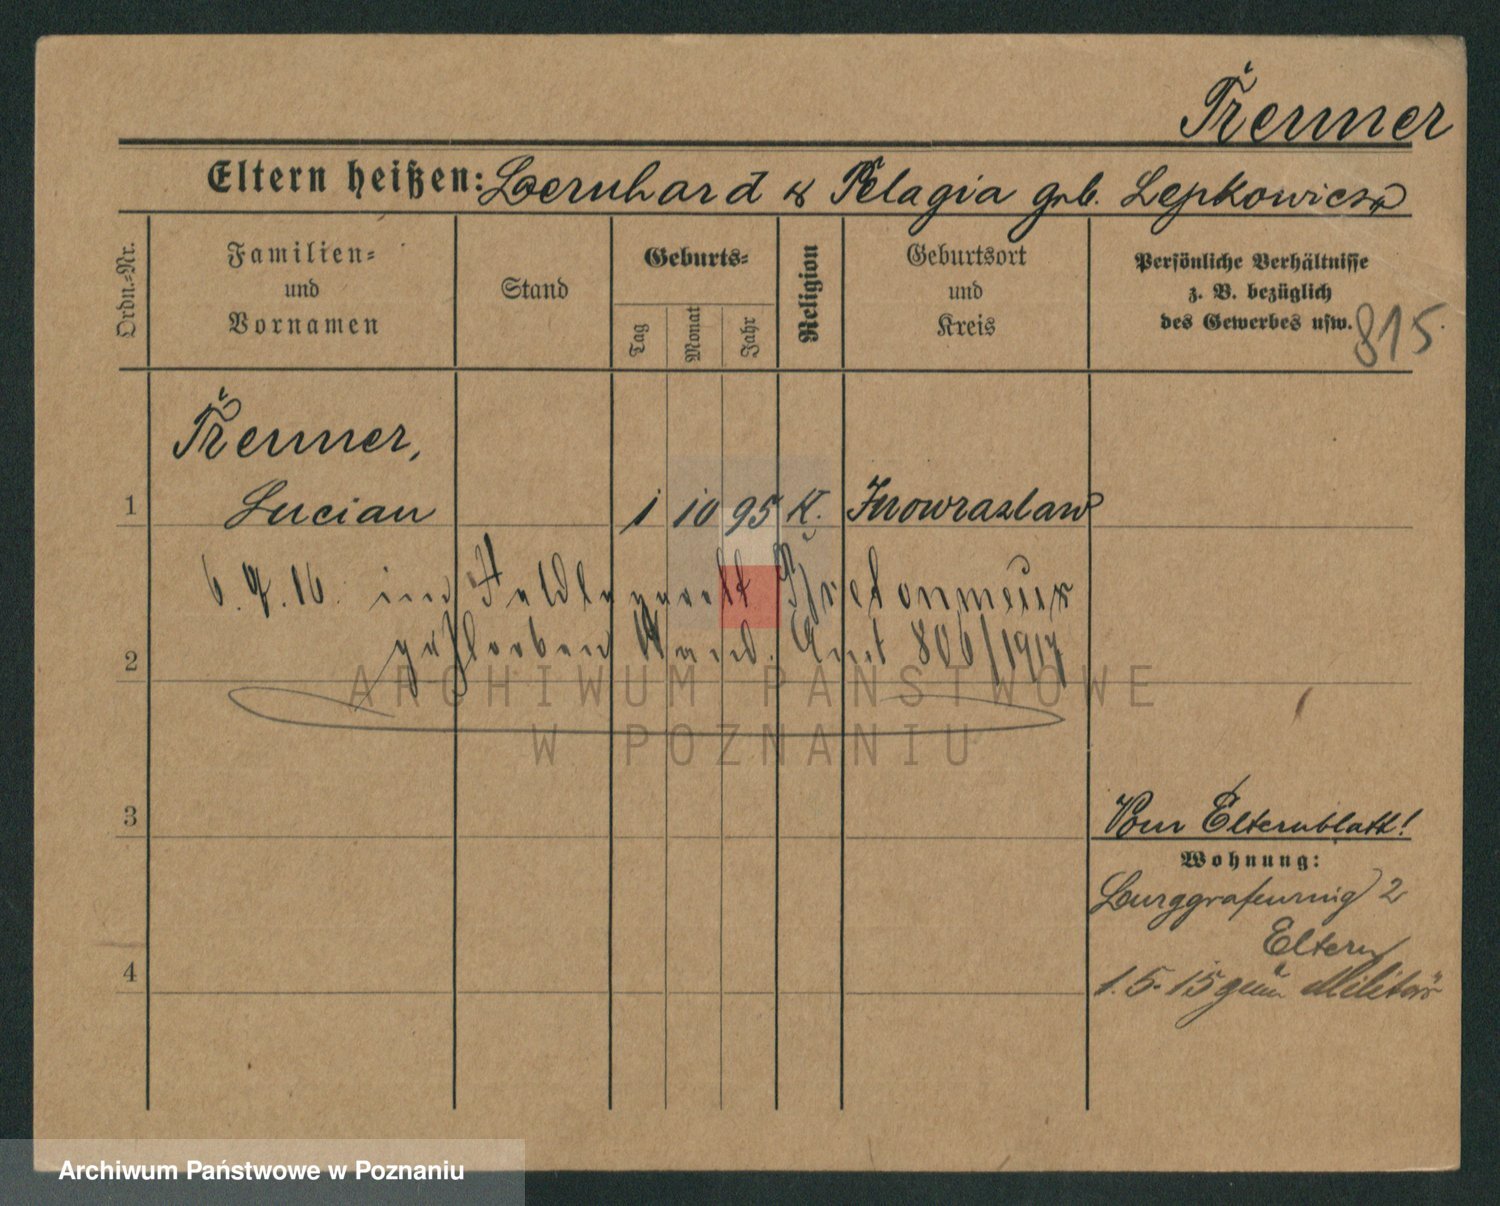 Tremner
Eltern heißen: Bernhard & Pelagia geb. Lepkowicz
Ordn.-Nr.
Familien-
und
Vornamen
Stand
Geburts-
Tag
Monat
Jahr
Religion
Geburtsort
und
Kreis
Persönliche Verhältnisse
z. B. bezüglich
des Gewerbes usw.
815.
Tremner,
1 Lucian 1 10 95 K. Inowrazlaw
6. 9. 16. im Feldlazarett
2 gestorben Stand. Amt 806/1917
ARCHIWUM PAŃSTWOWE
W POZNANIU
3
Vom Elternblatt!
Wohnung:
Burggrafenring 2
Eltern
4
1. 5. 15 zum Militär
Archiwum Państwowe w Poznaniu